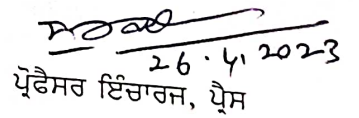 26.4.2023
ਪ੍ਰੋਫੈਸਰ ਇੰਚਾਰਜ, ਪ੍ਰੈਸ